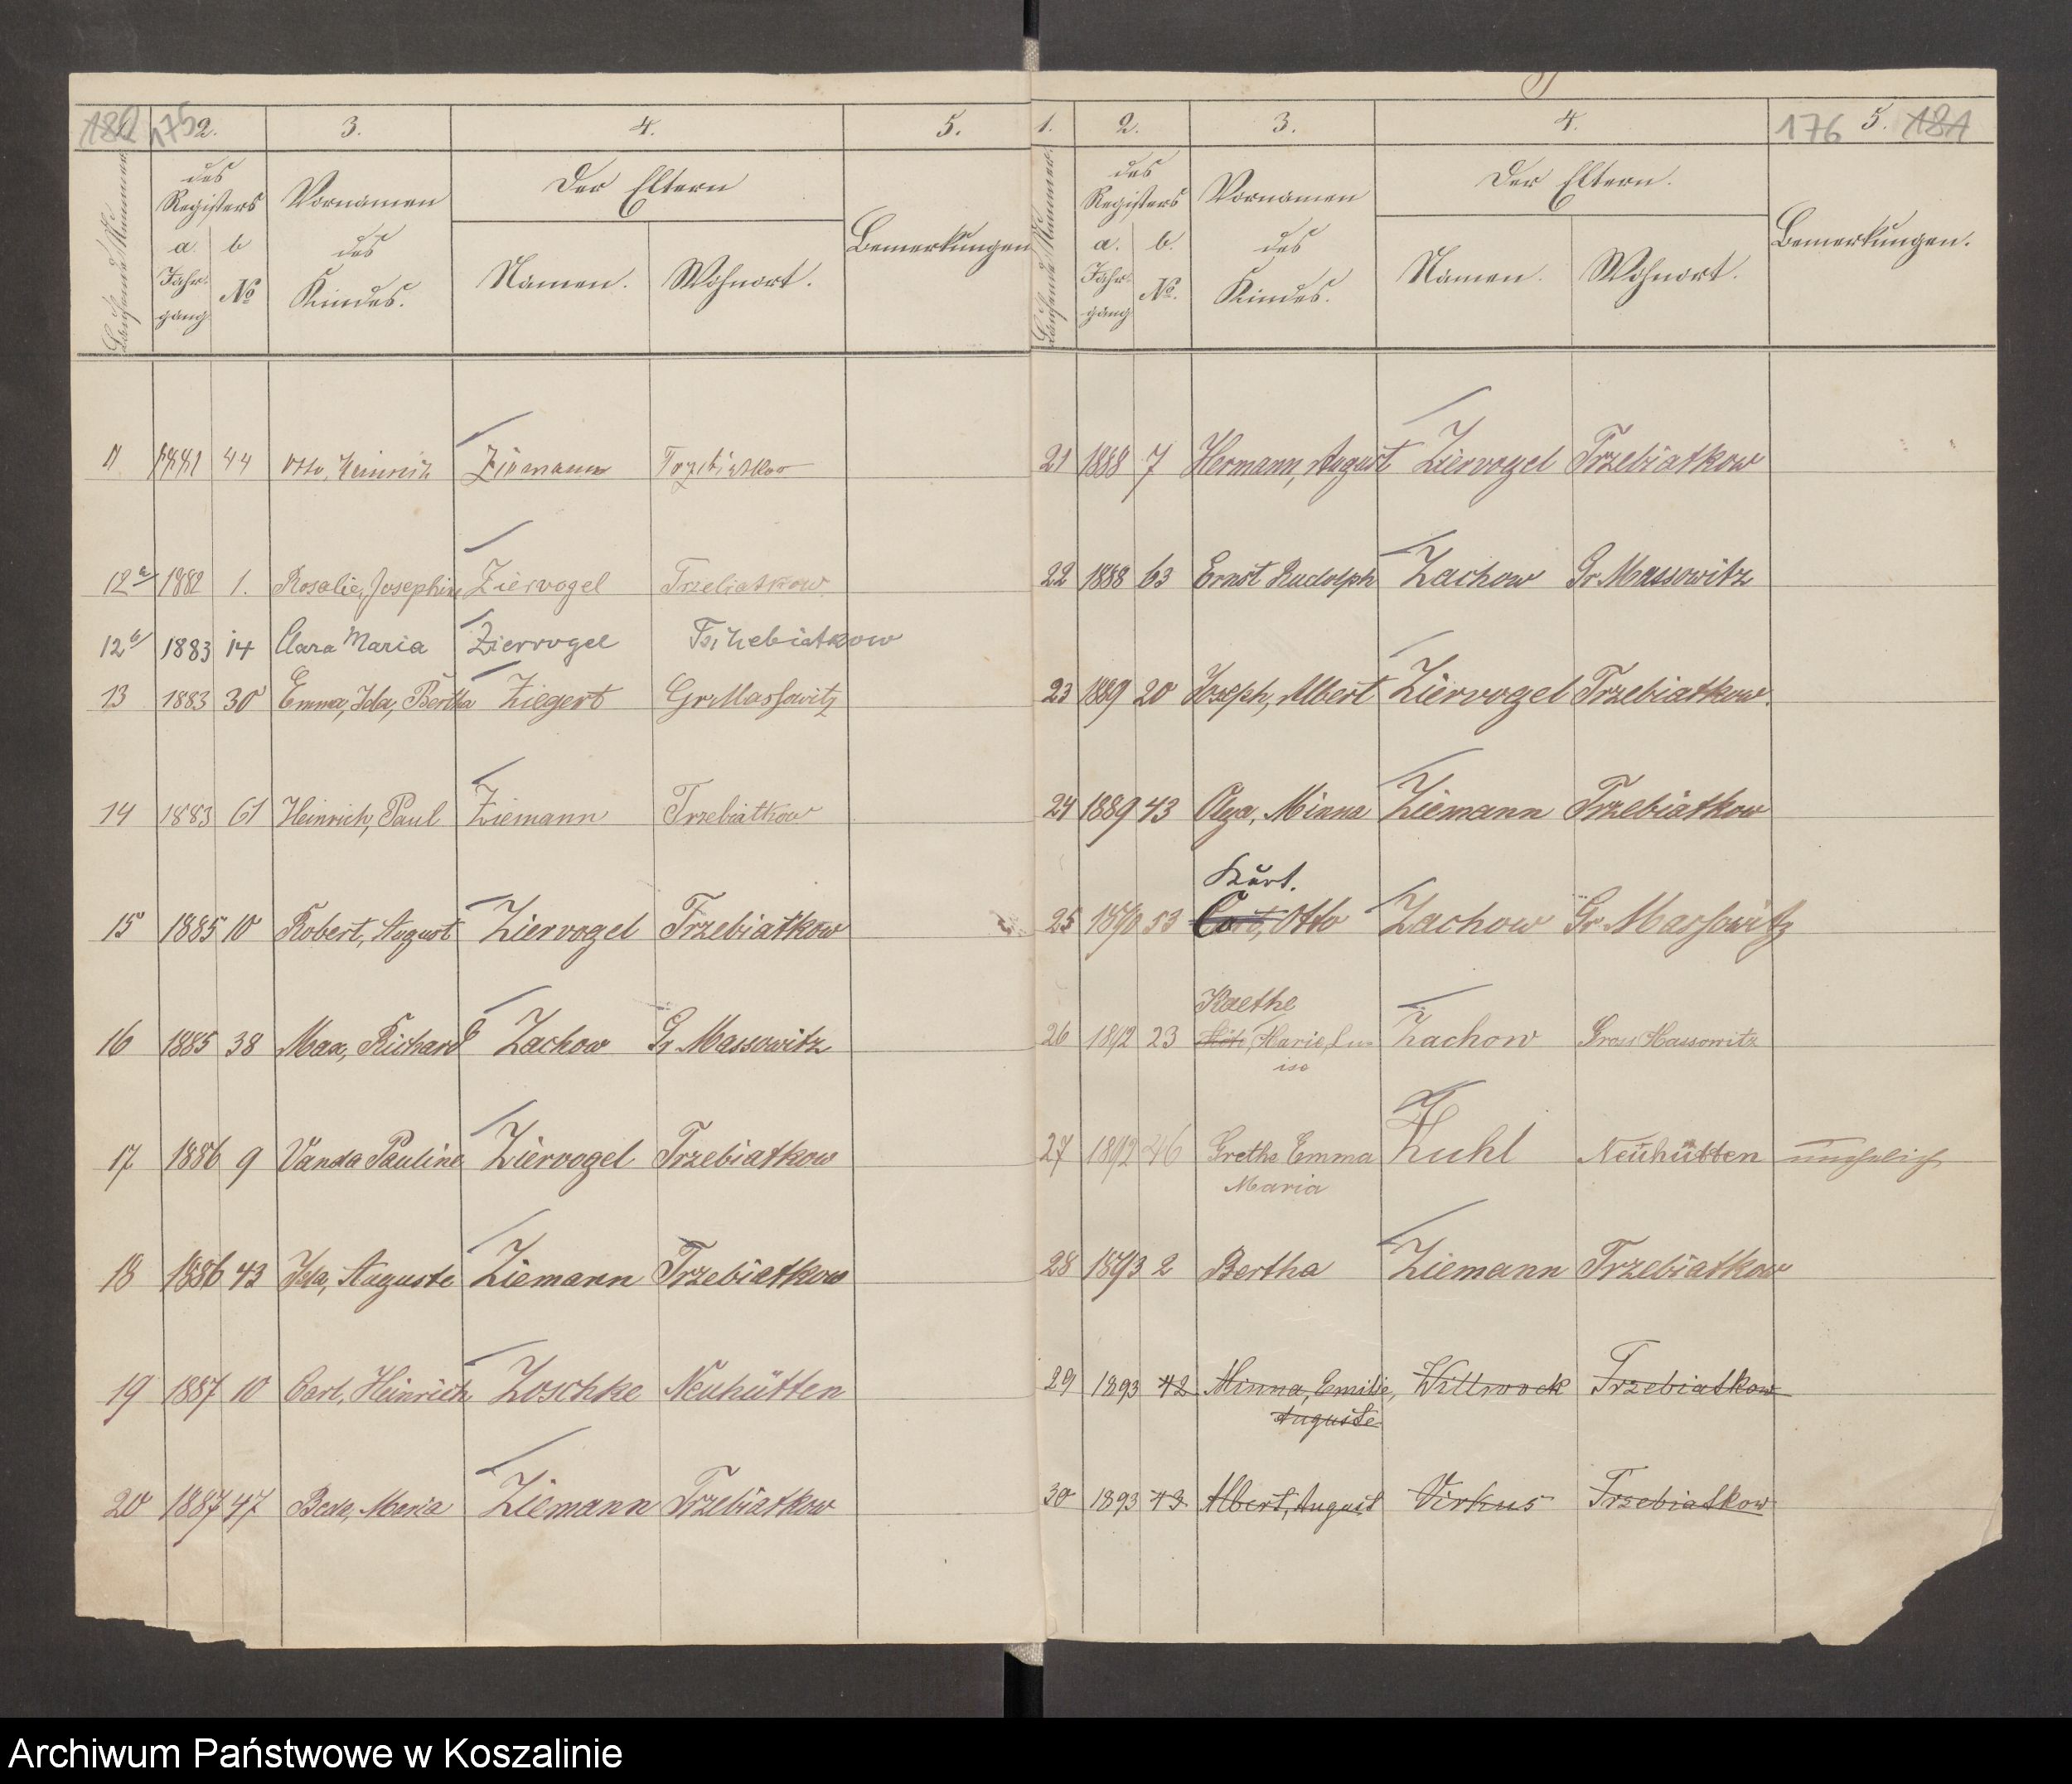 180 175 2. 3. 4. 5.
Laufende Nummer.
des Registers
Vornamen des Kindes.
Der Eltern
Bemerkungen
a. Jahrgang
b №
Namen.
Wohnort.
11 1881 44 Otto, Heinrich Ziemann Trzebiatkow
12a/ 1882 1. Rosalie, Josephine Ziervogel Trzebiatkow.
12b/ 1883 14 Clara Maria Ziervogel Trzhebiatkow
13 1883 30 Emma, Ida, Bertha Ziegert Gr Massowitz
14 1883 61 Heinrich, Paul Ziemann Trzebiatkow
15 1885 10 Robert, August Ziervogel Trzebiatkow
16 1885 38 Max, Richard Zachow Gr. Massowitz
17 1886 9 Vanda Pauline Ziervogel Trzebiatkow
18 1886 43 Ida, Auguste Ziemann Trzebiatkow
19 1887 10 Carl, Heinrich Zoschke Neuhütten
20 1887 47 Maria Ziemann Trzebiatkow
1. 2. 3. 4. 176 5. 181
Laufende Nummer.
des Registers
Vornamen des Kindes.
Der Eltern.
Bemerkungen.
a. Jahrgang
b. №.
Namen.
Wohnort.
21 1888 7 Hermann, August Ziervogel Trzebiatkow
22 1888 63 Ernst Rudolph Zachow Gr. Massowitz
23 1889 20 Joseph, Albert Ziervogel Trzebiatkow.
24 1889 43 Olga, Minna Ziemann Trzebiatkow
Kurt.
25 1890 53 Otto Zachow Gr. Massowitz
Kaethe
26 1892 23 Marie, Lu-
ise
Zachow Gross Massowitz
27 1892 46 Grethe Emma
Maria
Zuhl Neuhütten unehelich
28 1893 2 Bertha Ziemann Trzebiatkow
29 1893 42 Minna, Emilie,
Auguste
Willwock Trzebiatkow
30 1893 43 Albert, August Virkus Trzebiatkow
Archiwum Państwowe w Koszalinie